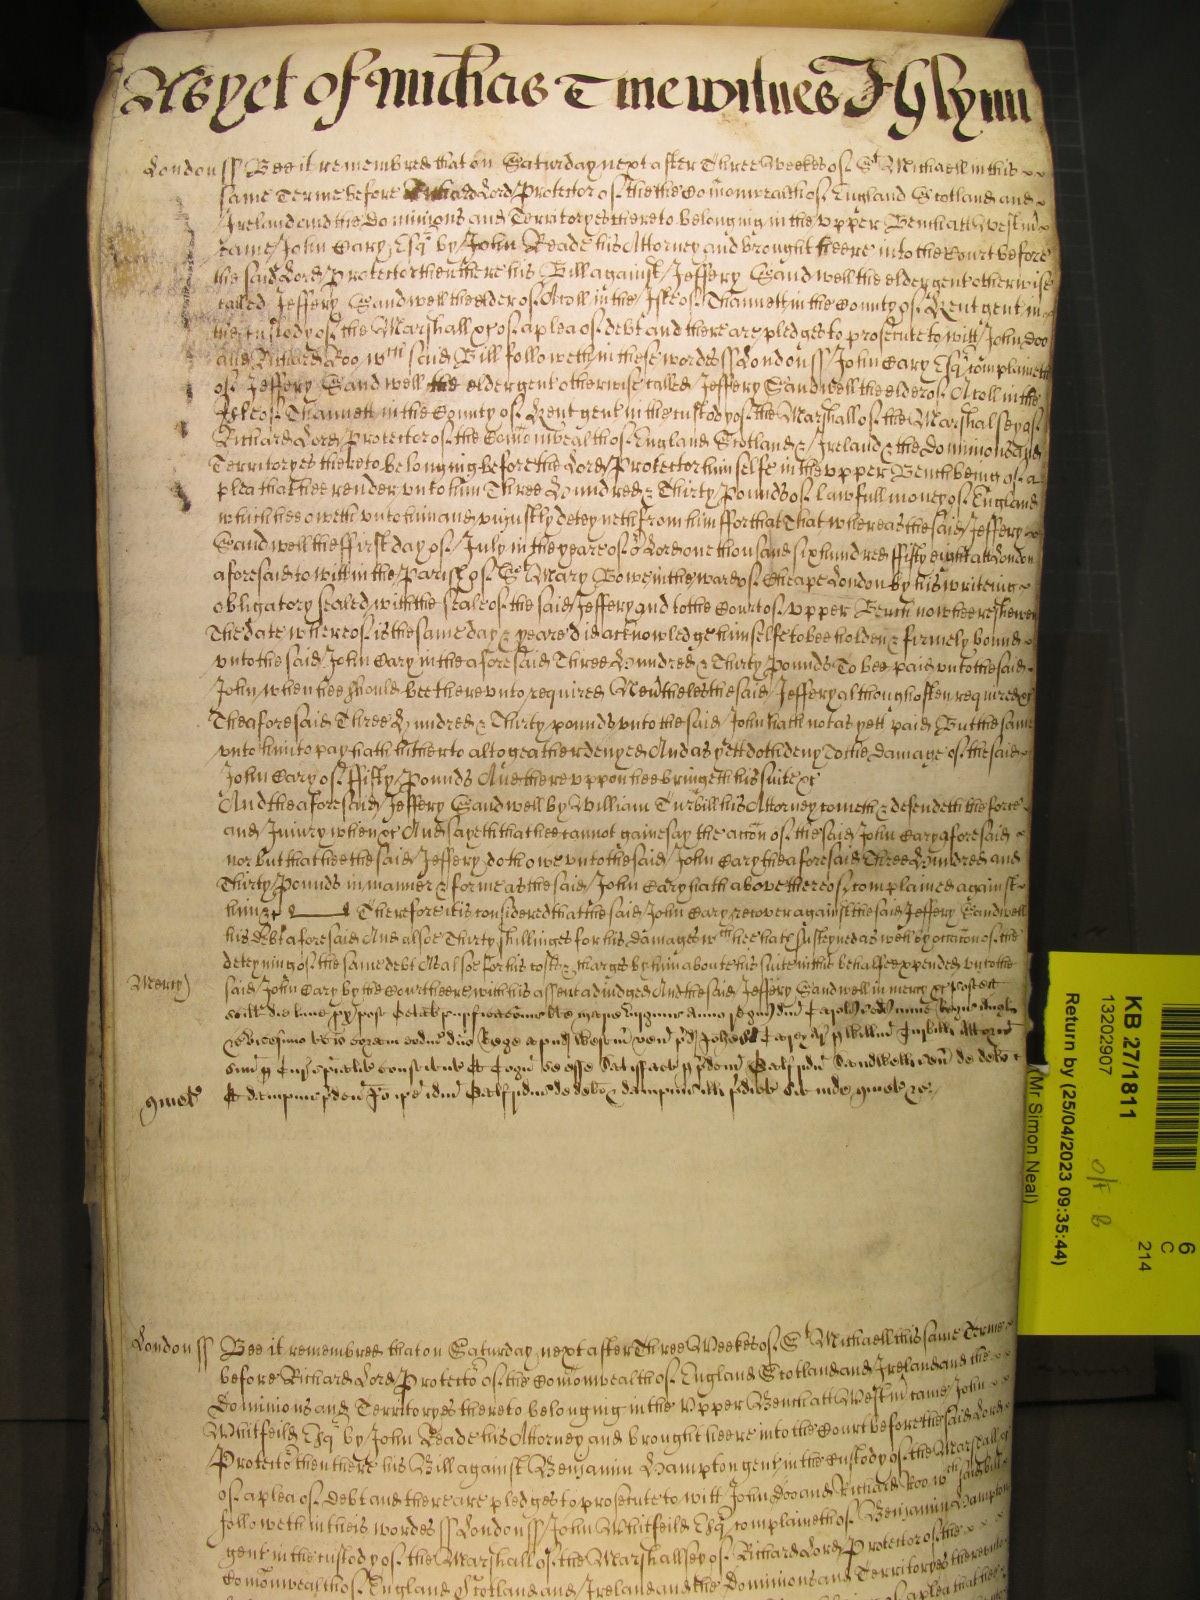 As yet of Michas Terme witnes J Glynn
London ss Bee it remembred that on Saturday next after Three Weekes of St Michaell in this
same Terme before Richard Lord Protector of the the Comonwealth of England Scotland and
Ireland and the Dominions and Territoryes thereto belonging in the Upper Bench att Westmr
came John Cary Esqr by John Reade his Attorney and brought heere into the Court before
the said Lord Protector then there his Bill against Jeffery Sandwell the elder gent otherwise
called Jeffery Sandwell the elder of Moll in the Isle of Thannett in the County of Kent gent in
the custody of the Marshall &c of a plea of debt and there are pledges to prosecute to witt John Doo
and Richard Roo wch said Bill followeth in these wordes ss London ss John Cary Esqr complaineth
of Jeffery Sandwell the elder gent otherwise called Jeffery Sandwell the elder of Moll in the
Isle of Thannett in the County of Kent gent in the custody of the Marshall of the Marshalsey of
Richard Lord Protector of the Comonwealth of England Scotland & Ireland & the Dominions and
Territoryes thereto belonging before the Lord Protector himselfe in the upper Bench being of a
plea that hee render unto him Three Hundred & Thirty Pounds of lawfull money of England
which hee oweth unto him and uniustly deteyneth from him ffor that That whereas the said Jeffery
Sandwell the ffirst day of July in the yeare of or Lord one thousand six hundred ffifty eight att London
aforesaid to witt in the Parish of St Mary Bowe in the ward of Cheape London by his writeing
obligatory sealed with the seale of the said Jeffery and to the Court of upper Bench now heere shewen
The date whereof is the same day & yeare did acknowledge himselfe to bee holden & firmely bound
unto the said John Cary in the aforesaid Three Hundred & Thirty Pounds To bee paid unto the said
John when hee should bee thereunto required Nevertheles the said Jeffery although often required &c
The aforesaid Three Hundred & Thirty pounds unto the said John hath not as yett paid But the same
unto him to pay hath hitherto altogeather denyed And as yett doth deny To the damage of the said
John Cary of ffifty Pounds And thereuppon hee bringeth his suite &c
And the aforesaid Jeffery Sandwell by William Turbill his Attorney cometh & defendeth the force
and Iniury when &c And sayeth that hee cannot gainesay the accon of the said John Cary aforesaid
nor but that hee the said Jeffery doth owe unto the said John Cary the aforesaid Three Hundred and
Thirty Pounds in manner & forme as the said John Cary hath above thereof complained against
him &c Therefore it is considered that the said John Cary recover against the said Jeffery Sandwell
his debt aforesaid And alsoe Thirty shillinges for his damages wch hee hath susteyned as well by occacon of the
deteyning of the same debt As alsoe for his costs & charges by him about his suite in this behalfe expended unto the
Mercy said John Cary by the Court heere with his assent adiudged And the said Jeffery Sandwell in mercy &c postea
coram dno Rege apud Westm
quiet
London ss Bee it remembred that on Saturday next after Three Weekes of St Michaell this same Terme
before Richard Lord Protector of the Comonwealth of England Scotland and Ireland and the
Dominions and Territoryes thereto belonging in the Upper Bench att Westmr came John
Whitfeild Esqr by John Reade his Attorney and brought heere into the Court before the said Lord
Protector then there his Bill against Benjamin Hampton gent in the custody of the Marshall &c
of a plea of debt and there are pledges to prosecute to witt John Doo and Richard Roo wch said bill
followeth in theis wordes ss London ss John Whitfeild Esqr complaineth of Benjamin Hampton
gent in the custody of the Marshall of the Marshallsey of Richard Lord Protector of the
Comonwealth of England Scotland and Ireland and the Dominions and Territoryes thereunto
KB 27/1811
13202907
Return by (25/04/2023 09:35:44)
(Mr Simon Neal)
6
C
214